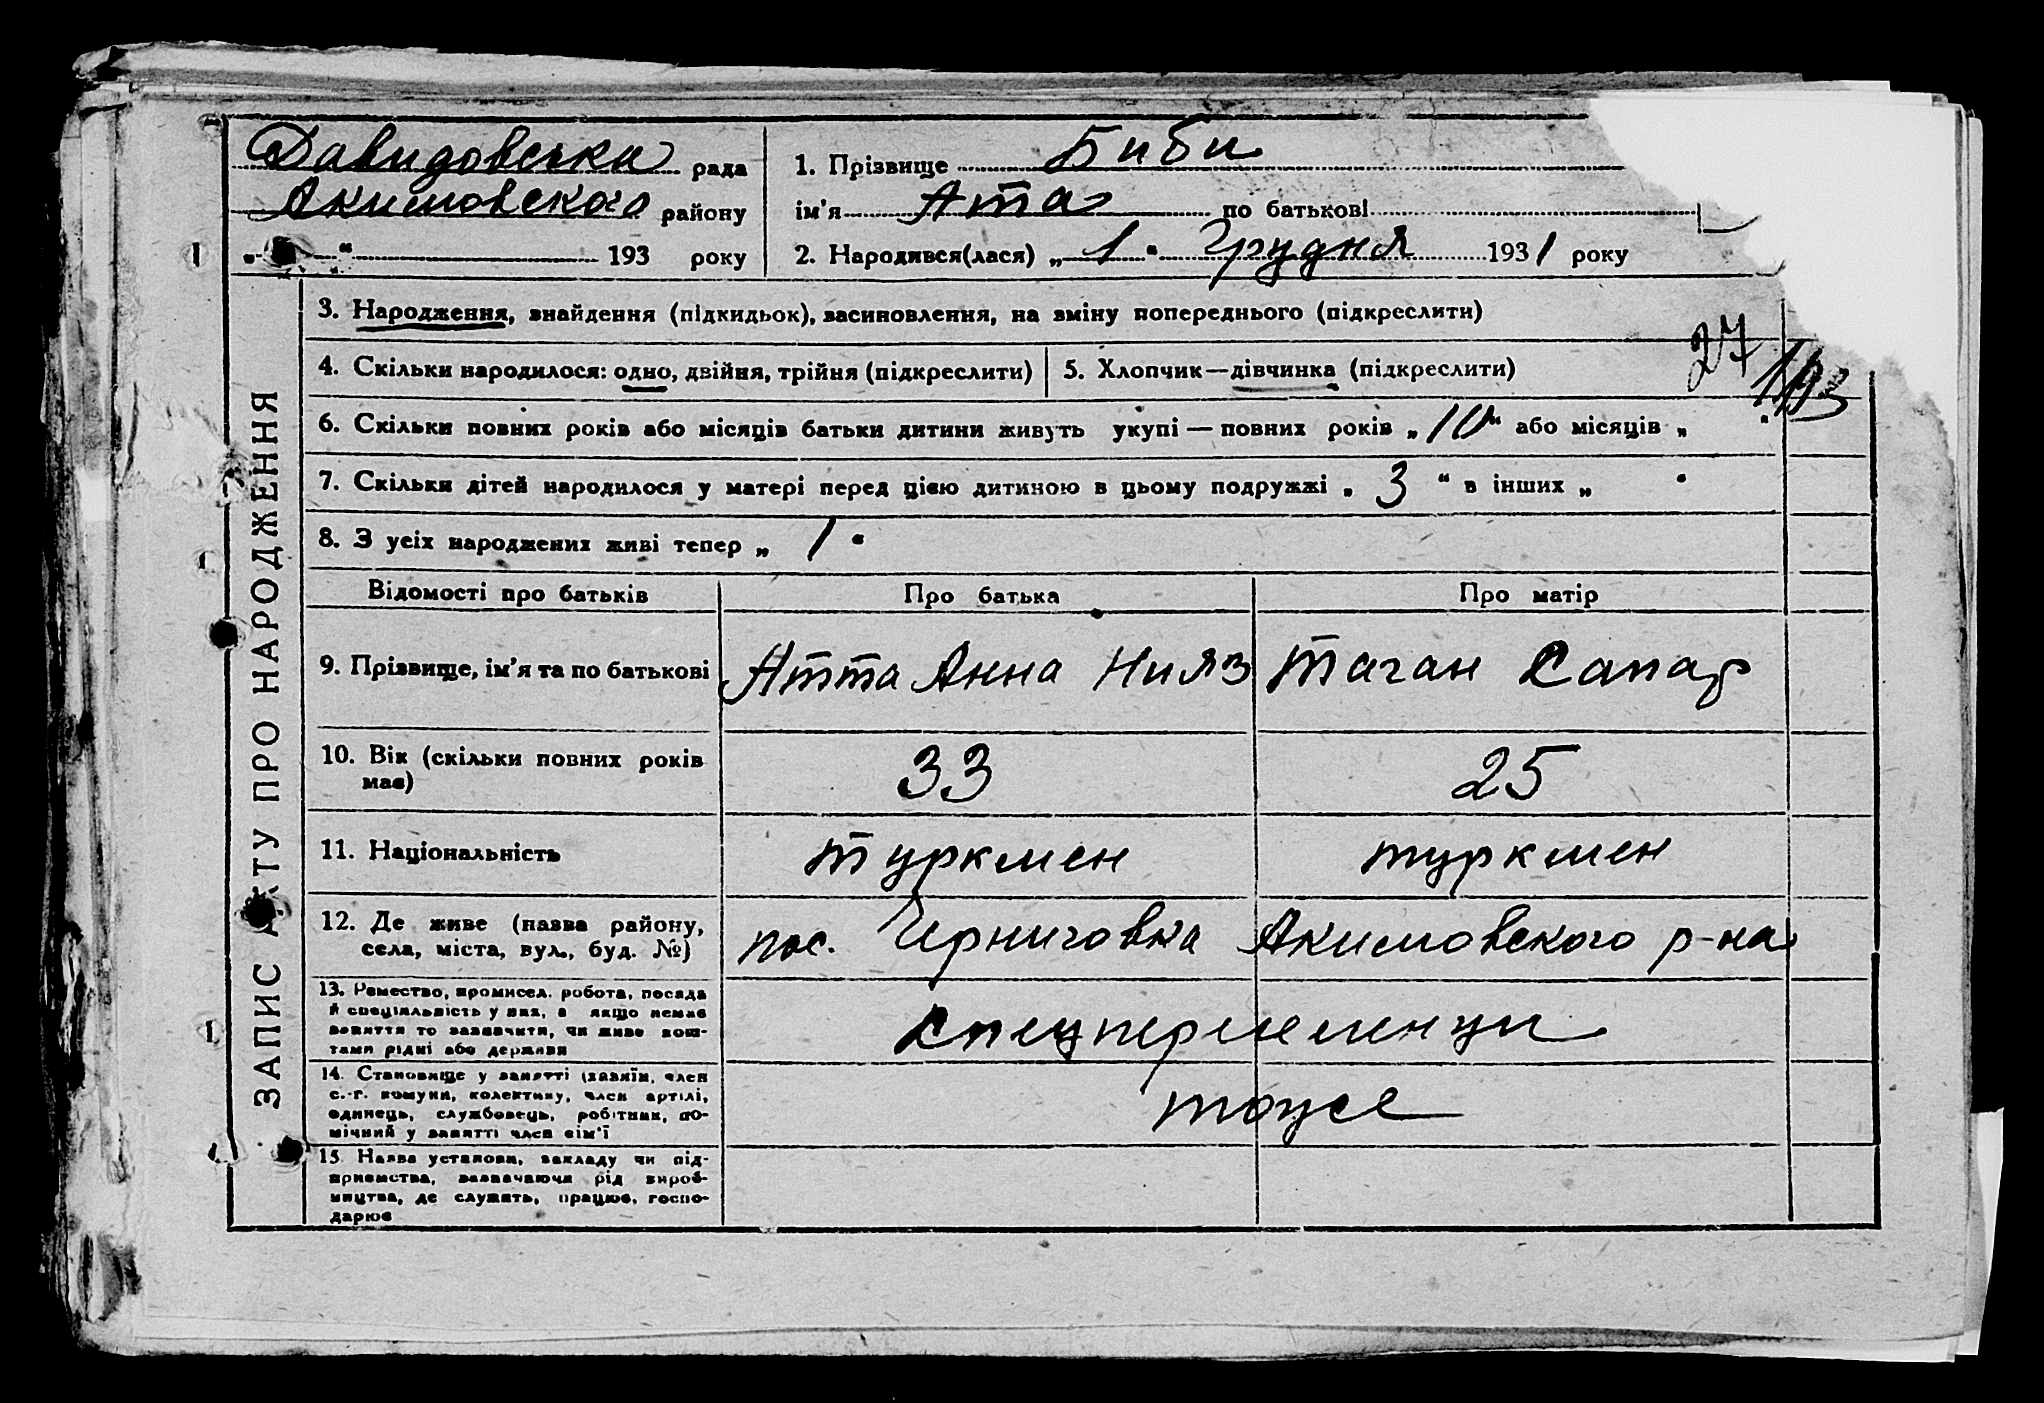 Давидовська рада
Акимовского району
„ “ 193 року
1. Прізвище Биби
ім'я Ата по батькові
2. Народився(лася) „ 1 “ Грудня 1931 року
ЗАПИС АКТУ ПРО НАРОДЖЕННЯ
3. Народження, знайдення (підкидьок), засиновлення, на зміну попереднього (підкреслити)
4. Скільки народилося: одно, двійня, трійня (підкреслити)
5. Хлопчик—дівчинка (підкреслити)
27
6. Скільки повних років або місяців батьки дитини живуть укупі — повних років „ 10 “ або місяців „ “
7. Скільки дітей народилося у матері перед цією дитиною в цьому подружжі „ 3 “ в інших „ “
8. З усіх народжених живі тепер „ 1 “
Відомості про батьків
Про батька
Про матір
9. Прізвище, ім'я та по батькові
Атта Анна Нияз
Таган Сапар
10. Вік (скільки повних років має)
33
25
11. Національність
туркмен
туркмен
12. Де живе (назва району,
села, міста, вул., буд. №)
пос. Черниговка Акимовского р-на
13. Ремество, промисел. робота, посада
й спеціяльність у них, а якщо немає
заняття то зазначити, чи живе кош-
тами рідні або держави
спецпереселенцы
14. Становище у занятті (хазяїн, член
с.-г. комуни, колективу, член артілі,
одинець, службовець, робітник, по-
мічний у занятті член сім'ї
тоже
15. Назва установи, закладу чи під-
приємства, зазначаючи рід вироб-
ництва, де служить, працює, госпо-
дарює